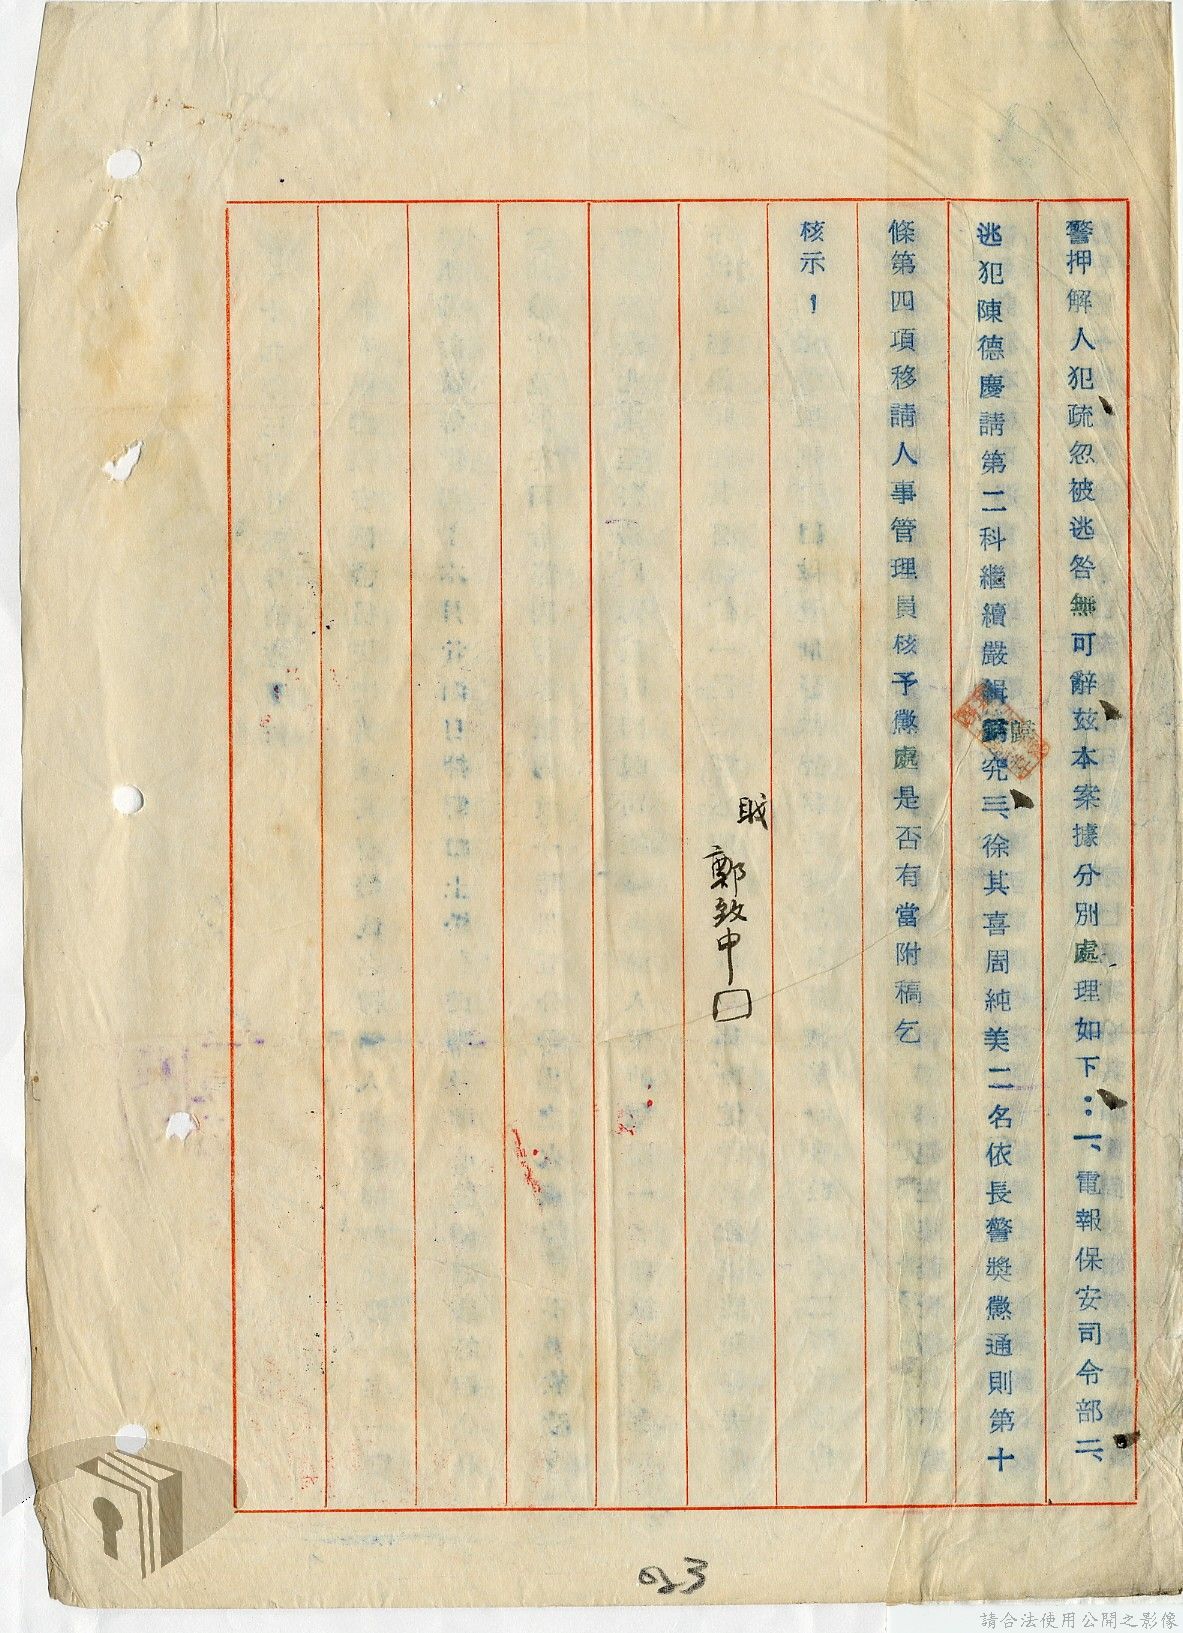 警押解人犯疏忽被逃咎無可辭茲本案據分別處理如下：一、電報保安司令部二、
逃犯陳德慶請第二科繼續嚴緝歸究三、徐其喜周純美二名依長警獎懲通則第十
條第四項移請人事管理員核予懲處是否有當附稿乞
核示！
職
鄭致中
023
請合法使用公開之影像